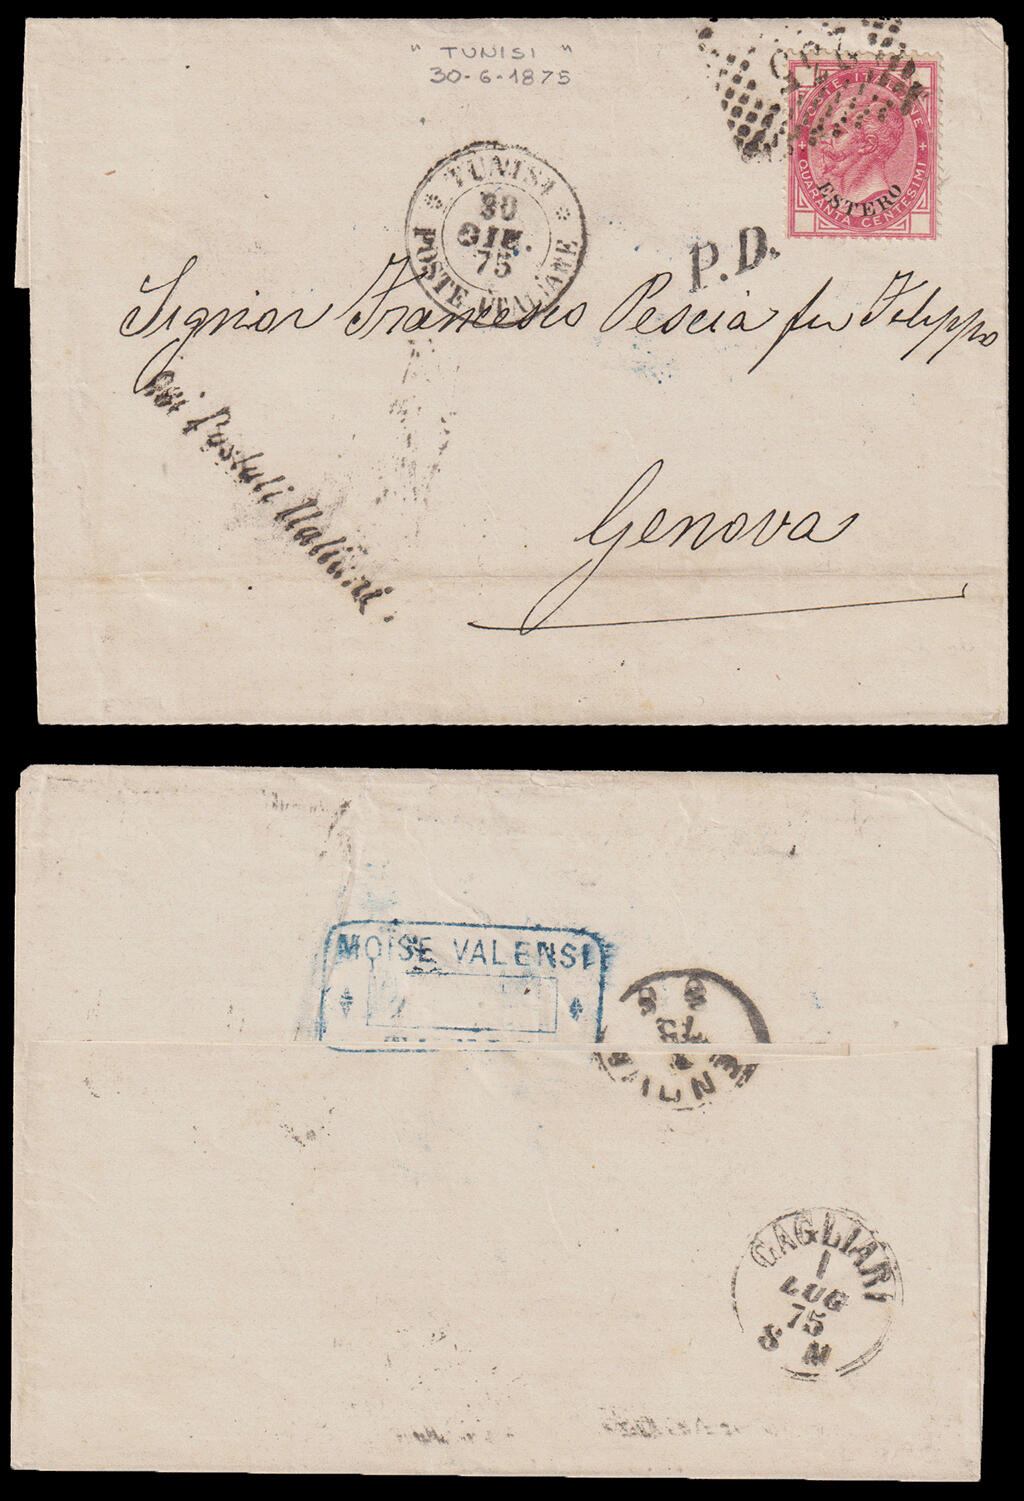 " TUNISI "
30-6-1875
POSTE ITALIANE
ESTERO
QUARANTA CENTESIMI
TUNISI
30
GIU.
75
POSTE ITALIANE
P.D.
Signor Francesco Pescia fu Filippo
Postali Italiani.
Genova
MOISE VALENSI
75
CAGLIARI
1
LUG
75
8 M